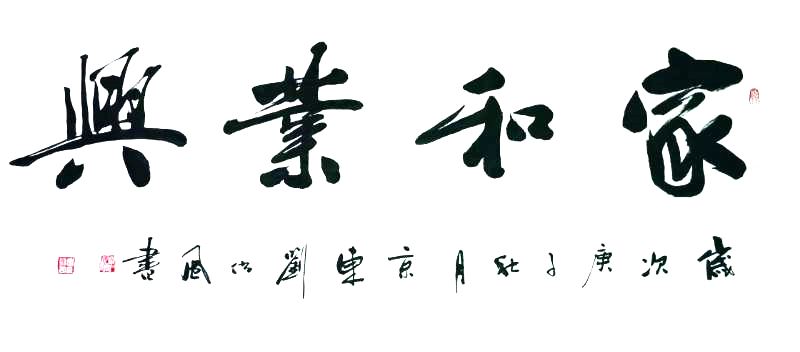 家和業興
歲次庚子秋月京東劉 風書